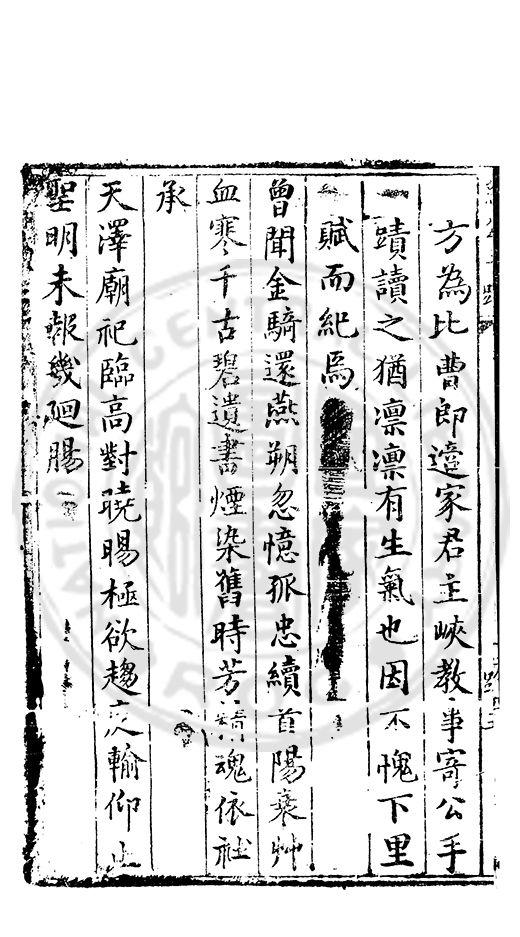 方為比曹郎邅家君主峽教事寄公手
蹟讀之猶凛凛有生氣也因不愧下里
賦而紀焉
曾聞金騎還燕朔忽憶孤忠續首陽衰艸
血寒千古碧遺書煙染舊時芳魂依社
承
天澤廟祀臨高對晓暘極欲趨輸仰止
聖明未報幾廻腸